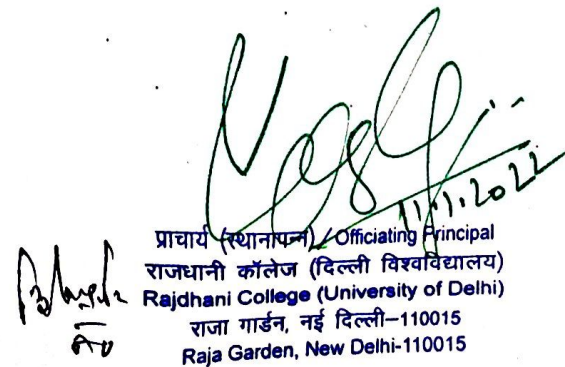 11.1.2022
प्राचार्य (स्थानापन्न) / Officiating Principal
राजधानी कॉलेज (दिल्ली विश्वविद्यालय)
Rajdhani College (University of Delhi)
राजा गार्डन, नई दिल्ली–110015
Raja Garden, New Delhi-110015